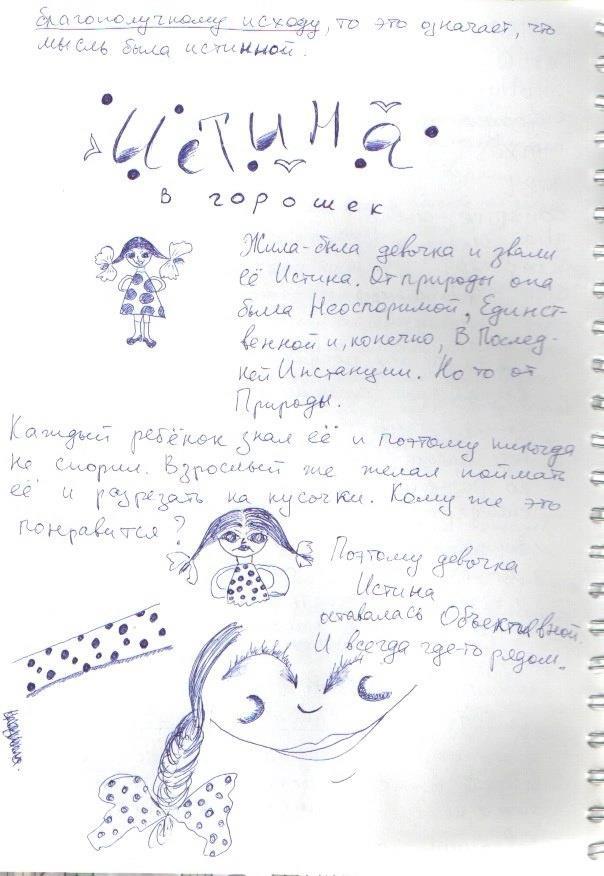 благополучному исходу, то это означает, что
мысль была истинной.
Истина
в горошек
Жила-была девочка и звали
её Истина. От природы она
была Неоспоримой, Единст-
венной и, конечно, В Послед-
ней Инстанции. Но то от
Природы.
Каждый ребёнок знал её и поэтому никогда
не спорил. Взрослый же желал поймать
её и разрезать на кусочки. Кому же это
понравится?
Поэтому девочка
Истина
оставалась Объективной.
И всегда где-то рядом.